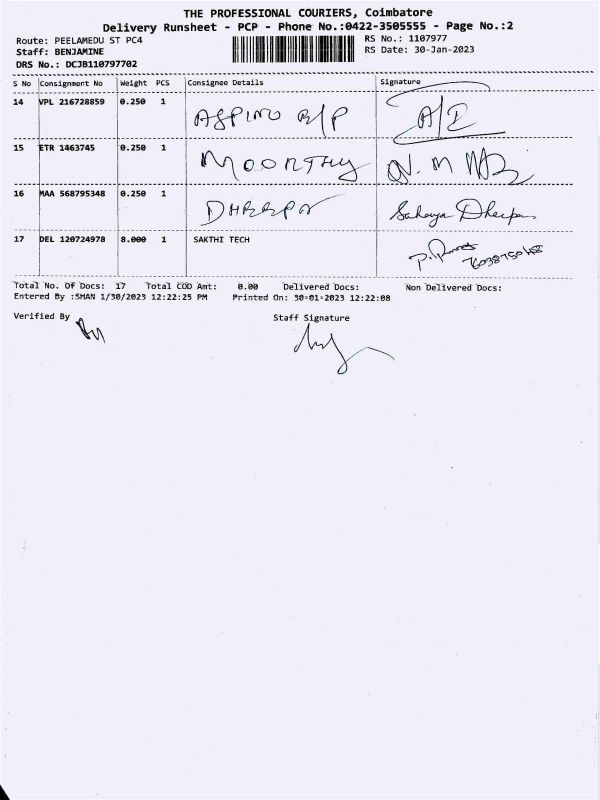 THE PROFESSIONAL COURIERS, Coimbatore
Delivery Runsheet - PCP - Phone No.:0422-3505555 - Page No.:2
Route: PEELAMEDU ST PC4 RS No.: 1107977
Staff: BENJAMINE RS Date: 30-Jan-2023
DRS No.: DCJB110797702
S No Consignment No Weight PCS Consignee Details Signature
14 VPL 216728859 0.250 1 A/I
15 ETR 1463745 0.250 1 MOORTHY
16 MAA 568795348 0.250 1 Sahaya
17 DEL 120724978 8.000 1 SAKTHI TECH
Total No. Of Docs: 17 Total COD Amt: 0.00 Delivered Docs: Non Delivered Docs:
Entered By :SMAN 1/30/2023 12:22:25 PM Printed On: 30-01-2023 12:22:08
Verified By Staff Signature